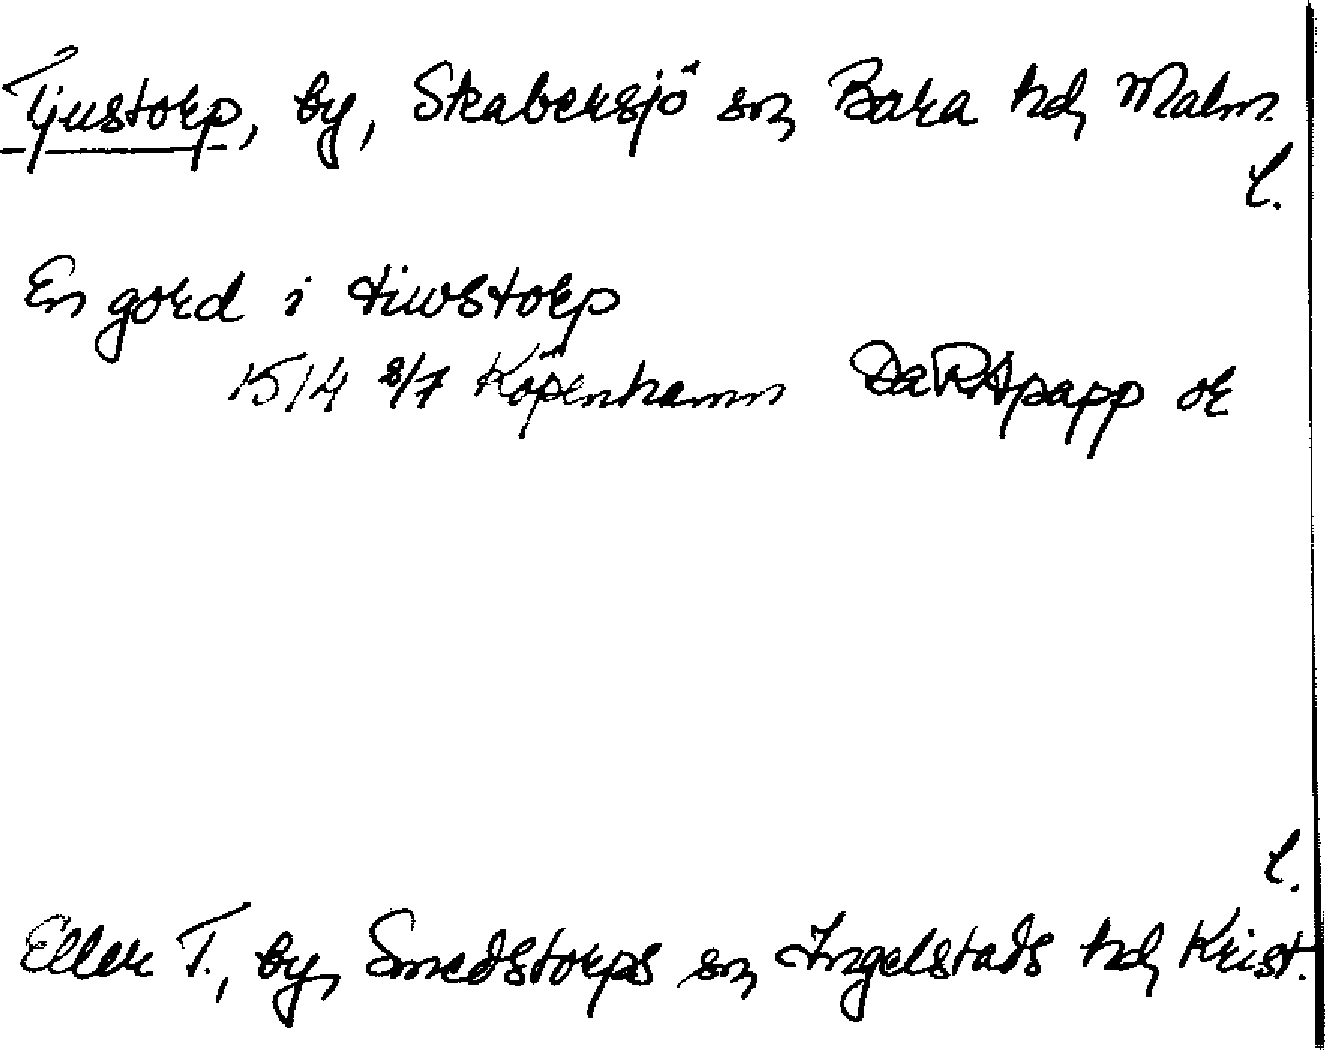 Tjustorp, by, Skabersjö sn, Bara hd, Malm.
l.
En gord i tiwstorp
1514 8/7 Köpenhamn DaRApapp or
l.
Eller T., by, Smedstorps sn, Ingelstads hd, Krist.